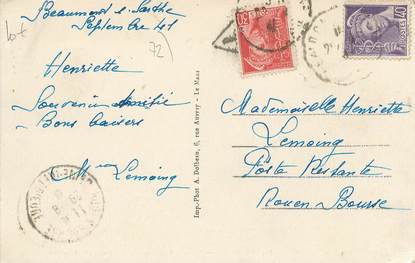 lot
Beaumont s. Sarthe
Septembre 41
72
Henriette
Souvenir Amitié
Bons baisers
Mme Lemoing
Imp.-Phot A. Dolbeau, 6, rue Auvray - Le Mans
30
40
Mademoiselle Henriette
Lemoing
Poste Restante
Rouen-Bourse